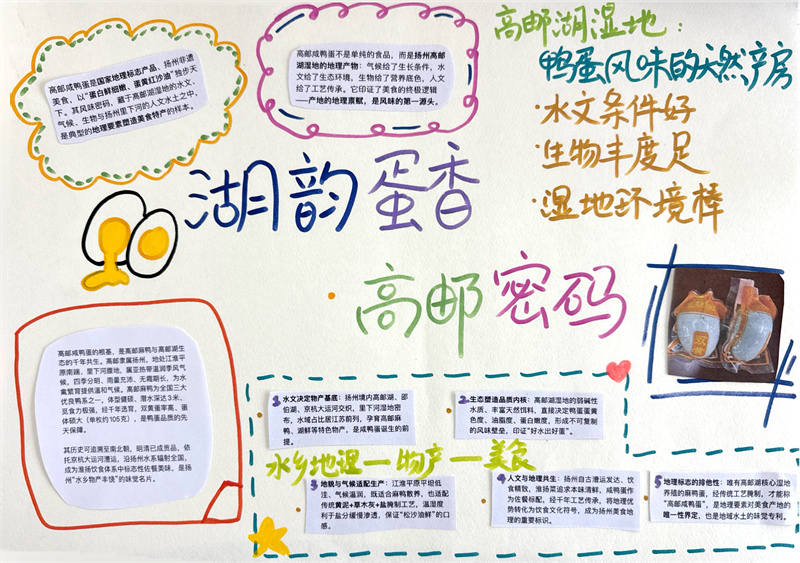 高邮咸鸭蛋是国家地理标志产品、扬州非遗
美食，以“蛋白鲜细嫩、蛋黄红沙油”独步天
下。其风味密码，藏于高邮湖湿地的水文、
气候、生物与扬州里下河的人文水土之中，
是典型的地理要素塑造美食特产的样本。
高邮咸鸭蛋不是单纯的食品，而是扬州高邮
湖湿地的地理产物：气候给了生长条件，水
文给了生态环境，生物给了营养底色，人文
给了工艺传承。它印证了美食的终极逻辑
——产地的地理禀赋，是风味的第一源头。
高邮湖湿地：
鸭蛋风味的天然产房
·水文条件好
·生物丰度足
·湿地环境棒
湖韵蛋香
·高邮密码
高邮咸鸭蛋的根基，是高邮麻鸭与高邮湖生
态的千年共生。高邮隶属扬州，地处江淮平
原南端、里下河腹地，属亚热带温润季风气
候，四季分明、雨量充沛、无霜期长，为水
禽繁育提供温和气候。高邮麻鸭为全国三大
优良鸭系之一，体型健硕、潜水深达3米、
觅食力极强，经千年选育，双黄蛋率高、蛋
体硕大（单枚约105克），是鸭蛋品质的先
天保障。
其历史可追溯至南北朝，明清已成贡品，依
托京杭大运河漕运，沿扬州水系辐射全国，
成为淮扬饮食体系中标志性佐餐美味，是扬
州“水乡物产丰饶”的味觉名片。
1 水文决定物产基底：扬州境内高邮湖、邵
伯湖、京杭大运河交织，里下河湿地密
布，水域占比居江苏前列，孕育高邮麻
鸭、湖鲜等特色物产，是咸鸭蛋诞生的前
提。
2 生态塑造品质内核：高邮湖湿地的弱碱性
水质、丰富天然饵料，直接决定鸭蛋蛋黄
色度、油脂度、蛋白嫩度，形成不可复制
的风味壁垒，印证“好水出好蛋”。
水乡地理—物产—美食
3 地貌与气候适配生产：江淮平原平坦低
洼、气候温润，既适合麻鸭散养，也适配
传统黄泥+草木灰+盐腌制工艺，温湿度
利于盐分缓慢渗透，保证“松沙油鲜”的口
感。
4 人文与地理共生：扬州自古漕运发达、饮
食精致，淮扬菜追求本味清鲜，咸鸭蛋作
为佐餐标配，经千年工艺传承，将地理优
势转化为饮食文化符号，成为扬州美食地
理的重要标识。
5 地理标志的排他性：唯有高邮湖核心湿地
养殖的麻鸭蛋，经传统工艺腌制，才能称
“高邮咸鸭蛋”，是地理要素对美食产地的
唯一性界定，也是地域水土的味觉专利。